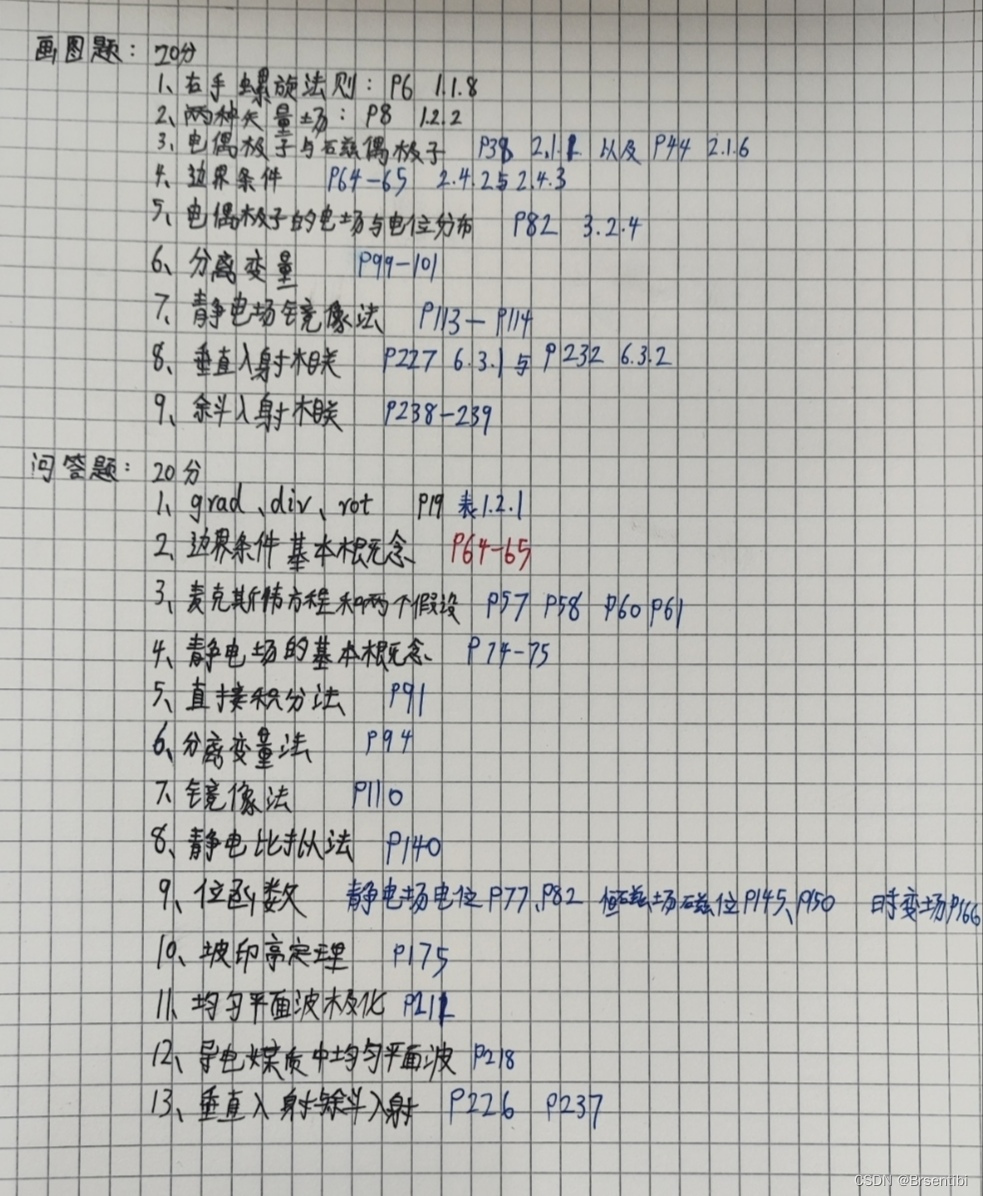 画图题: 20分
1、右手螺旋法则: P6 1.1.8
2、两种矢量场: P8 1.2.2
3、电偶极子与磁偶极子 P38 2.1.1 以及 P44 2.1.6
4、边界条件 P64-65 2.4.2与2.4.3
5、电偶极子的电场与电位分布 P82 3.2.4
6、分离变量 P99-101
7、静电场镜像法 P113-P114
8、垂直入射相关 P227 6.3.1与P232 6.3.2
9、余斗入射相关 P238-239
问答题: 20分
1、grad、div、rot P19 表1.2.1
2、边界条件基本概念 P64-65
3、麦克斯韦方程和两个假设 P57 P58 P60 P61
4、静电场的基本概念 P74-75
5、直接积分法 P91
6、分离变量法 P94
7、镜像法 P110
8、静电比拟法 P140
9、位函数 静电场电位P77、P82 恒磁场磁位P145、P150 时变场P166
10、坡印亭定理 P175
11、均匀平面波极化 P211
12、导电媒质中均匀平面波 P218
13、垂直入射与斜入射 P226 P237
CSDN @Brsentibi